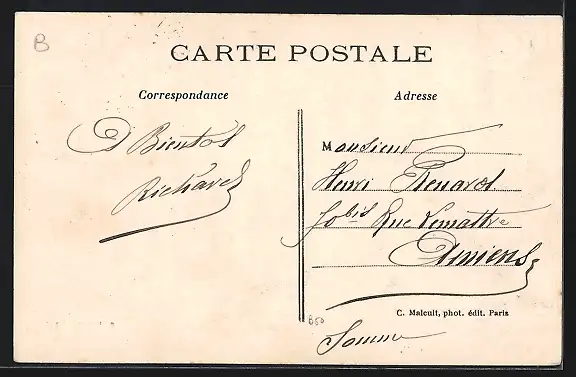 B
CARTE POSTALE
Correspondance
Adresse
A Bientot
Richard
Monsieur
Henri Renard
bis Rue Lemattre
Amiens
C. Malcuit, phot. édit. Paris
B50
Somme